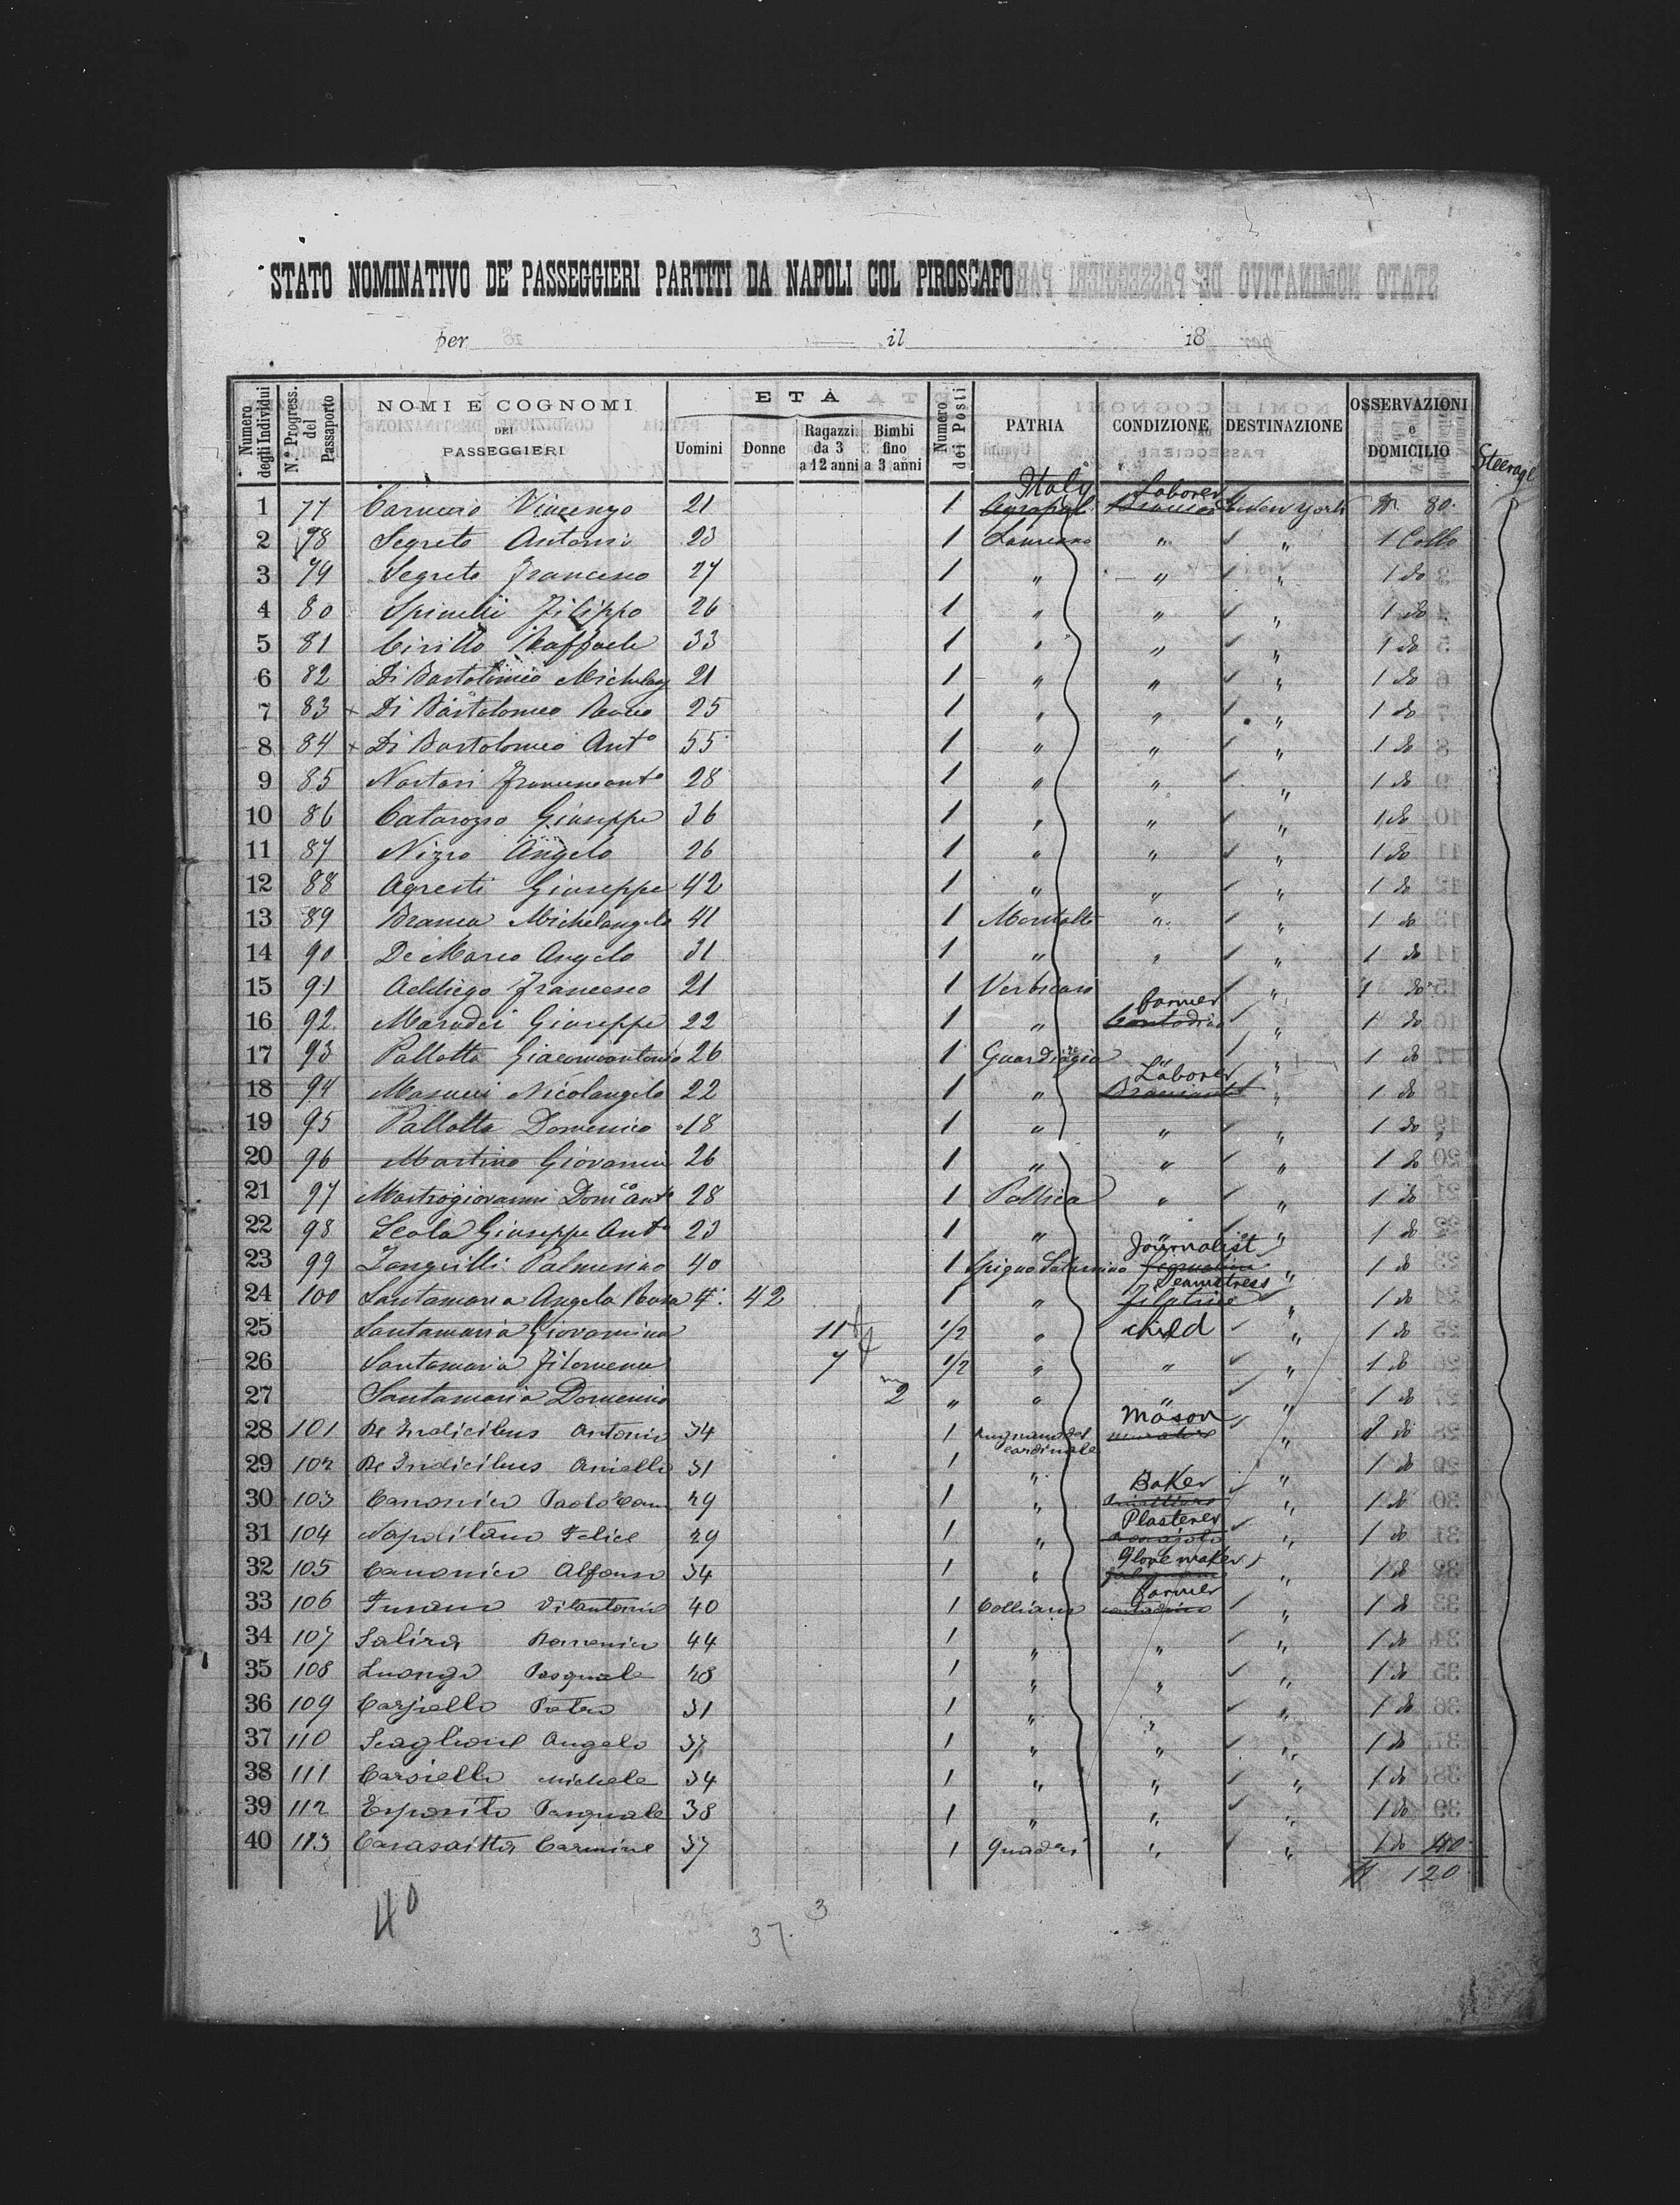 STATO NOMINATIVO DE' PASSEGGIERI PARTITI DA NAPOLI COL PIROSCAFO
per il 18
Numero degli Individui N.º Progress. del Passaporto NOMI E COGNOMI DEI PASSEGGIERI ETÀ Uomini Donne Ragazzi da 3 a 12 anni Bimbi fino a 3 anni Numero dei Posti PATRIA CONDIZIONE DESTINAZIONE OSSERVAZIONI e DOMICILIO
Steerage
Italy Laborer
1 77 Vincenzo 21 1 New York 80
2 78 Segreto Antonio 23 1 Laureana " " 1 Collo
3 79 Segreto Francesco 27 1 " " " 1 do
4 80 Spinelli Filippo 26 1 " " " 1 do
5 81 Cirillo Raffaele 33 1 " " " 1 do
6 82 Di Bartolomeo Michelang 21 1 " " " 1 do
7 83 x Di Bartolomeo Rocco 25 1 " " " 1 do
8 84 x Di Bartolomeo Antº 55 1 " " " 1 do
9 85 Nastari 28 1 " " " 1 do
10 86 Catarozzo Giuseppe 36 1 " " " 1 do
11 87 Nizzo Angelo 26 1 " " " 1 do
12 88 Agresti Giuseppe 42 1 " " " 1 do
13 89 Branca Michelangelo 41 1 Montalto " " 1 do
14 90 De Marco Angelo 31 1 " " " 1 do
15 91 Addiego Francesco 21 1 Verbicaro " 1 do
farmer
16 92 Giuseppe 22 1 " Contadino " 1 do
17 93 Pallotta Giacomoantonio 26 1 Guardiaregia " " 1 do
Laborer
18 94 Masucci Nicolangelo 22 1 " Bracciante " 1 do
19 95 Pallotta Domenico 18 1 " " " 1 do
20 96 Martino Giovanni 26 1 " " " 1 do
21 97 Mastrogiovanni Domº Antº 28 1 Pollica " " 1 do
22 98 Scola Giuseppe Antº 23 1 " " " 1 do
Journalist
23 99 Zangrilli Palmerino 40 1 Spigno Saturnino " 1 do
Seamstress
24 100 Santamaria Angela Rosa 42 1 " Filatrice " 1 do
25 Santamaria Giovannina 11 1/2 " child " 1 do
26 Santamaria Filomena 7 1/2 " " " 1 do
27 Santamaria Domenico 2 " " " " 1 do
Mason
28 101 De Indicibus Antonio 34 1 Mugnano del cardinale muratore " 1 do
29 102 De Indicibus Aniello 31 1 " " 1 do
Baker
30 103 Canonico Paolo 29 1 " " 1 do
Plasterer
31 104 Napolitano Felice 29 1 " " 1 do
Glove maker
32 105 Canonico Alfonso 34 1 " " 1 do
farmer
33 106 Fusano Vitantonio 40 1 Colliano contadino " 1 do
34 107 Domenico 44 1 " " " 1 do
35 108 Luongo Pasquale 28 1 " " " 1 do
36 109 Carsiello Pietro 31 1 " " " 1 do
37 110 Scaglione Angelo 37 1 " " " 1 do
38 111 Carsiello Michele 34 1 " " " 1 do
39 112 Esposito Pasquale 38 1 " " " 1 do
40 113 Carmine 37 1 " " 1 do 40
120
40
3
37